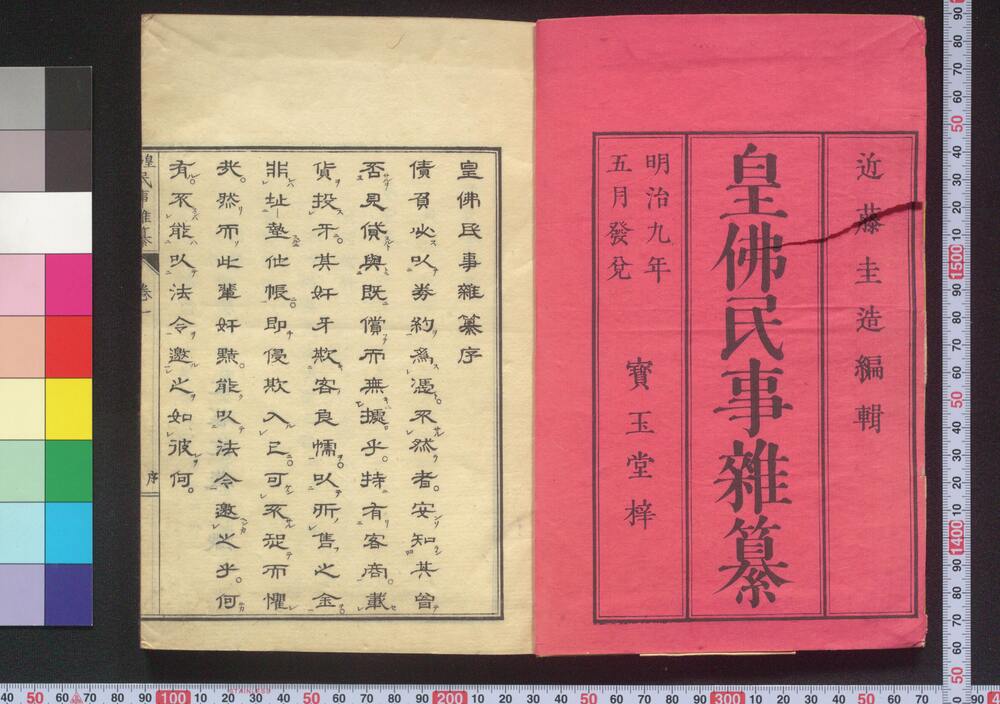 近藤圭造編輯
皇佛民事雜纂
明治九年
五月發兌
寶玉堂梓
皇佛民事雜纂序
債負必以券約爲憑不然者。安知其曾
否見貸與既償而無據乎。持有客商載
貨投牙。其奸牙欺客良懦以所售之金
非址墊他帳。即侵欺入己可不寒而懼
哉。然而此輩奸黠。能以法令邀之乎。何
有不能以法令邀之如彼何。
皇民事雜纂
卷一
序